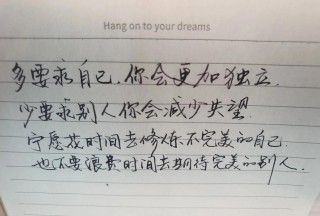 Hang on to your dreams
多要求自己,你会更加独立.
少要求别人你会减少失望.
宁愿花时间去修炼不完美的自己.
也不要浪费时间去期待完美的别人.